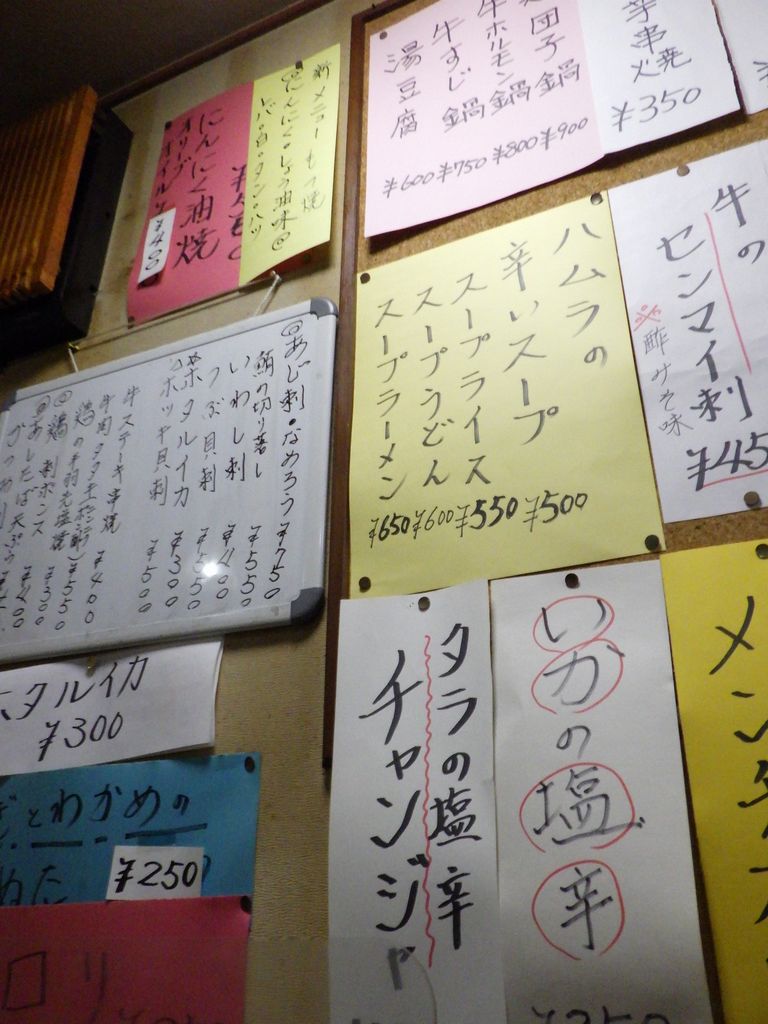 新メニュー もつ焼
◎にんにく・しょう油味◎
レバ・白・タン・ハツ
にんにく油焼
オリーブオイル ¥400
団子鍋 ¥900
牛ホルモン鍋 ¥800
牛すじ鍋 ¥750
湯豆腐 ¥600
串焼
¥350
牛の
センマイ刺
※酢みそ味
¥45
ハムラの
辛いスープ ¥500
スープライス ¥550
スープうどん ¥600
スープラーメン ¥650
◎あじ刺・なめろう ¥750
鮪の切り落し ¥550
いわし刺 ¥400
つぶ貝刺 ¥550
ホタルイカ ¥300
ホッキ貝刺 ¥500
牛ステーキ串焼 ¥400
牛肉タタキ(ポン酢) ¥550
鶏の手羽先塩焼
◎鶏刺ポンス ¥300
◎あしたば天ぷら ¥400
ホタルイカ
¥300
とわかめの
ぬた
¥250
ロリ
タラの塩辛
チャンジャ
いかの塩辛
メン